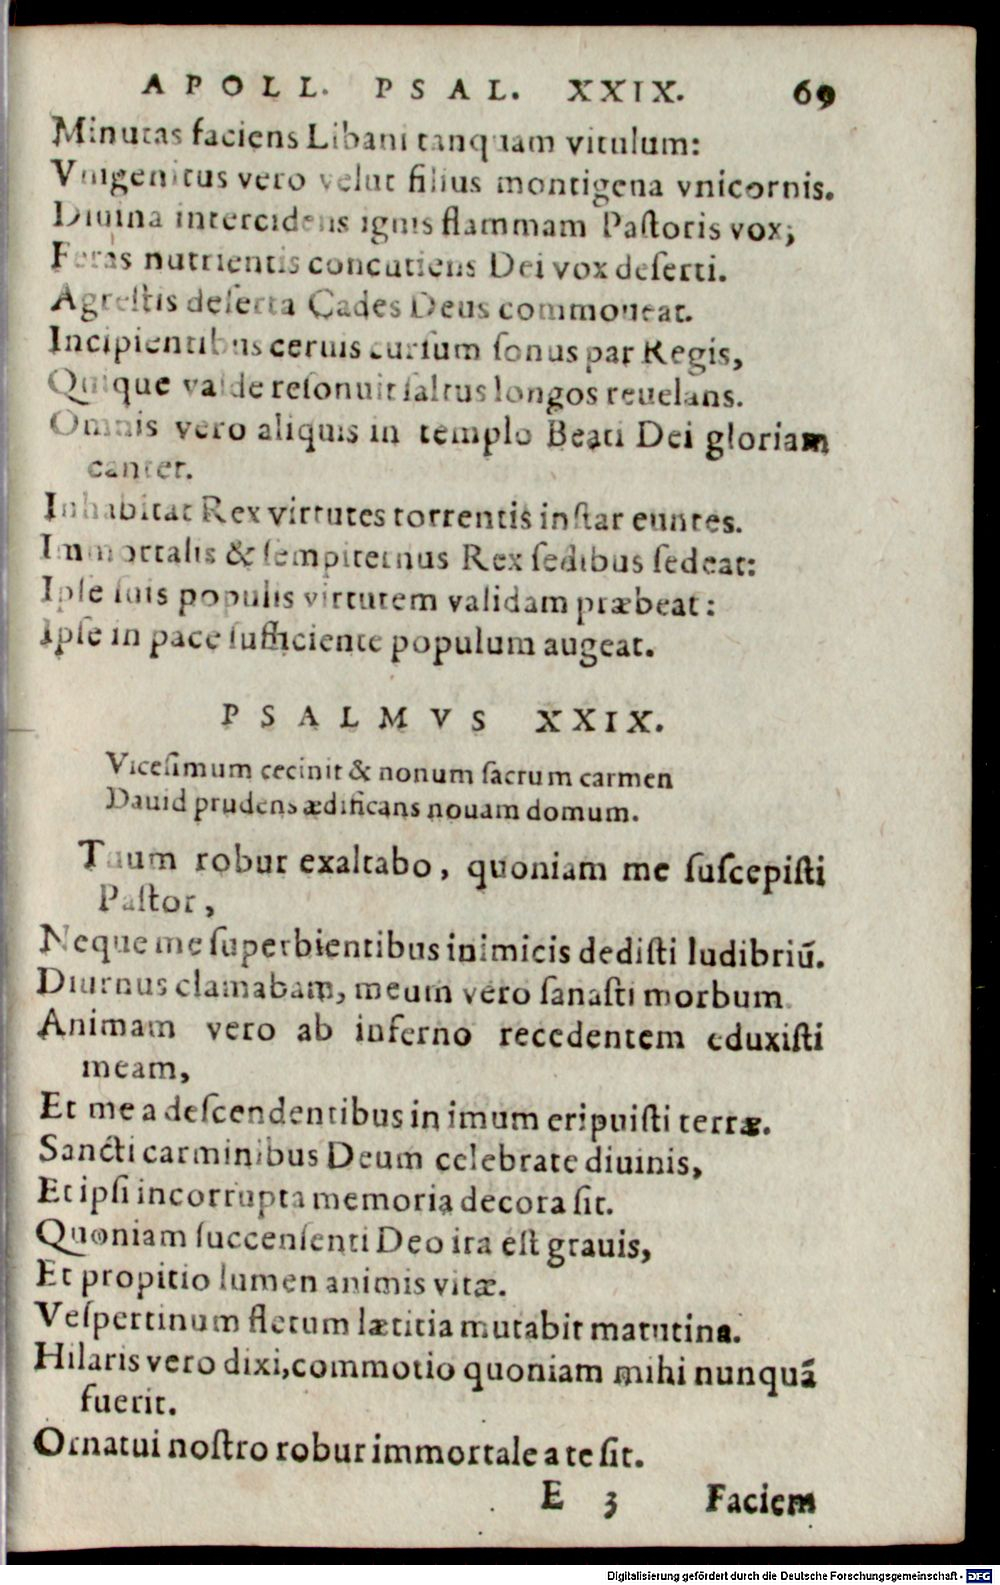 APOLL. PSAL. XXIX. 69
Minutas faciens Libani tanquam vitulum:
Vnigenitus vero velut filius montigena vnicornis.
Diuina intercidens ignis flammam Paſtoris vox;
Feras nutrientis concutiens Dei vox deſerti.
Agreſtis deſerta Cades Deus commoueat.
Incipientibus ceruis curſum ſonus par Regis,
Quique valde reſonuit ſaltus longos reuelans.
Omnis vero aliquis in templo Beati Dei gloriam
cantet.
Inhabitat Rex virtutes torrentis inſtar euntes.
Immortalis & ſempiternus Rex ſedibus ſedeat:
Ipſe ſuis populis virtutem validam præbeat:
Ipſe in pace ſufficiente populum augeat.
PSALMVS XXIX.
Viceſimum cecinit & nonum ſacrum carmen
Dauid prudens ædificans nouam domum.
Tuum robur exaltabo, quoniam me ſuſcepiſti
Paſtor,
Neque me ſuperbientibus inimicis dediſti ludibriũ.
Diurnus clamabam, meum vero ſanaſti morbum.
Animam vero ab inferno recedentem eduxiſti
meam,
Et me a deſcendentibus in imum eripuiſti terræ.
Sancti carminibus Deum celebrate diuinis,
Et ipſi incorrupta memoria decora ſit.
Quoniam ſuccenſenti Deo ira eſt grauis,
Et propitio lumen animis vitæ.
Veſpertinum fletum lætitia mutabit matutina.
Hilaris vero dixi, commotio quoniam mihi nunquã
fuerit.
Ornatui noſtro robur immortale a te ſit.
E 3 Faciem
Digitalisierung gefördert durch die Deutsche Forschungsgemeinschaft - DFG